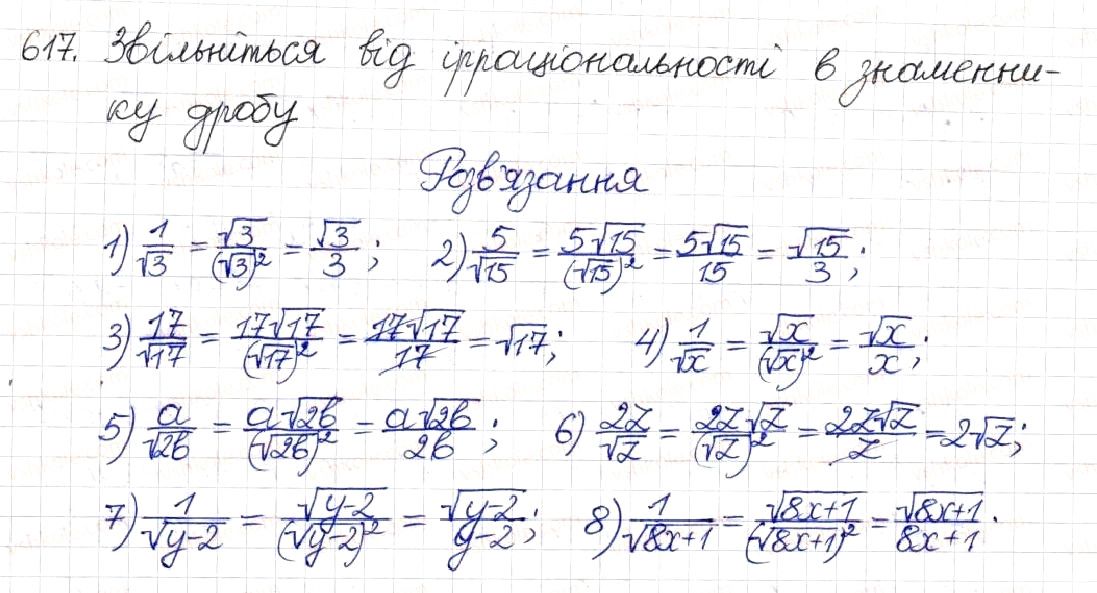 617. Звільніться від ірраціональності в знаменни-
ку дробу
Розв'язання
1) 1/√3 = √3/(√3)² = √3/3; 2) 5/√15 = 5√15/(√15)² = 5√15/15 = √15/3;
3) 17/√17 = 17√17/(√17)² = 17√17/17 = √17; 4) 1/√x = √x/(√x)² = √x/x;
5) a/√2b = a√2b/(√2b)² = a√2b/2b; 6) 2z/√z = 2z√z/(√z)² = 2z√z/z = 2√z;
7) 1/√y-2 = √y-2/(√y-2)² = √y-2/y-2; 8) 1/√8x+1 = √8x+1/(√8x+1)² = √8x+1/8x+1.